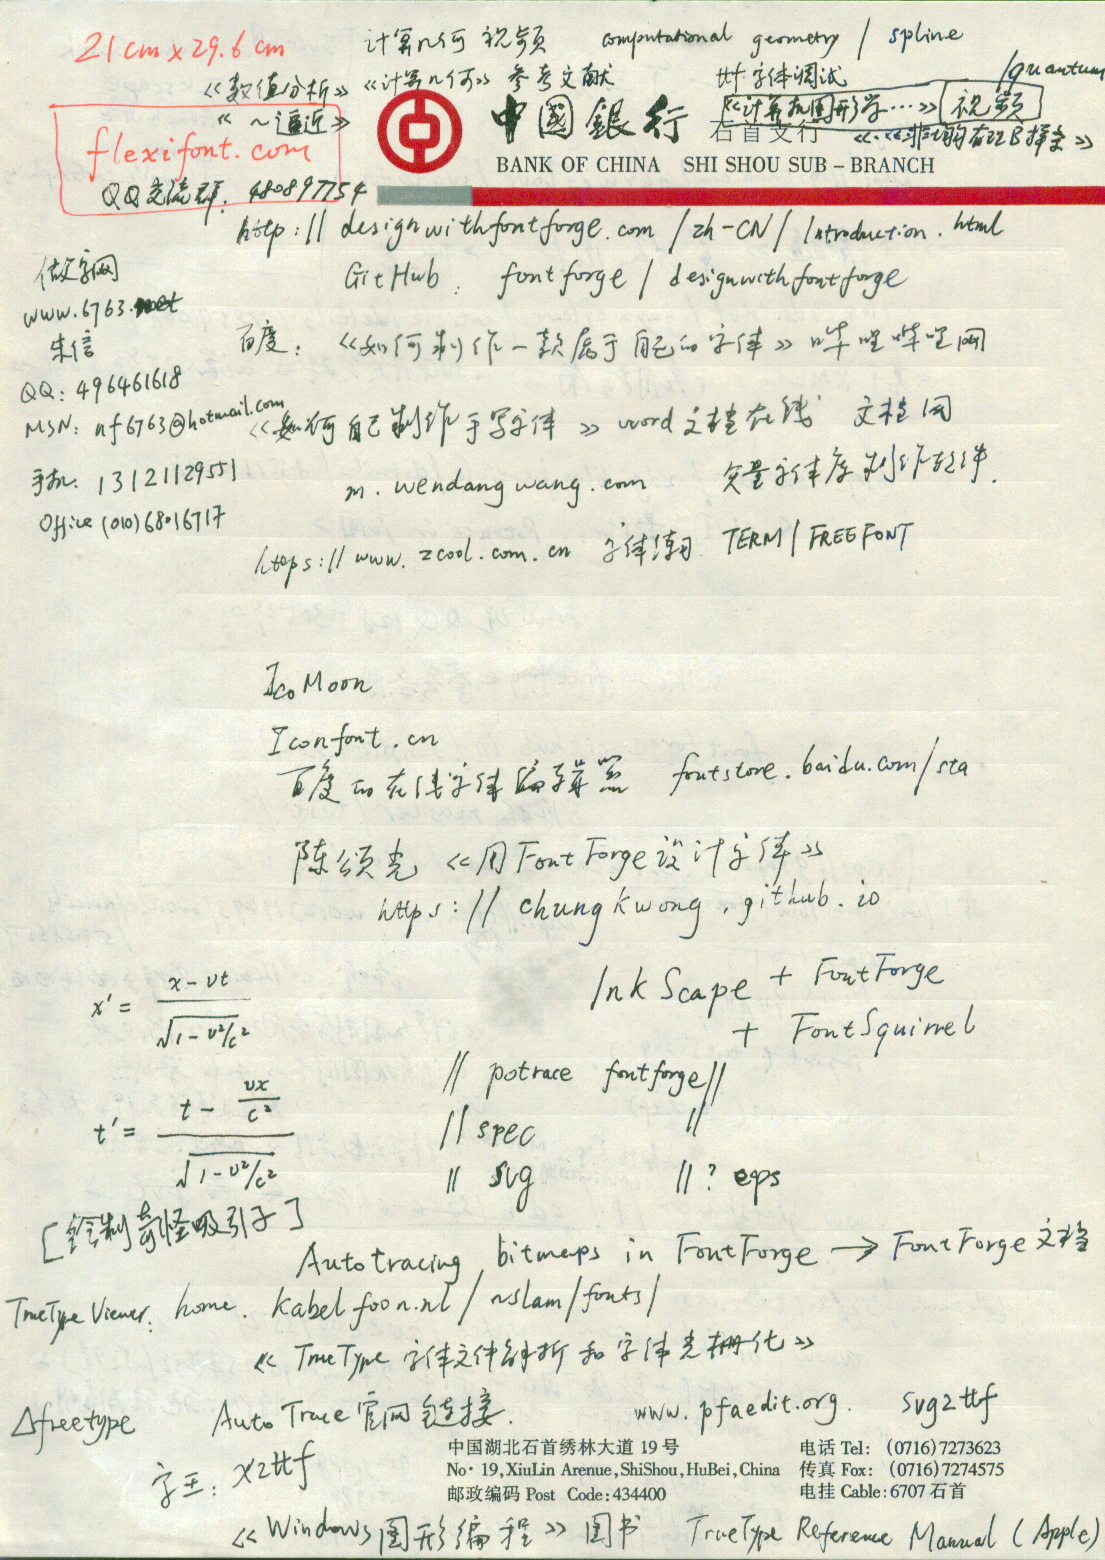 21cm x 29.6 cm
计算几何 视频 computational geometry / spline
《数值分析》《计算几何》 参考文献 ttf 字体调试 /quantum
《~逼近》
《计算机图形学…》 视频
flexifont.com
中國銀行 石首支行
BANK OF CHINA SHI SHOU SUB-BRANCH
QQ交流群. 480897754
http://designwithfontforge.com/zh-CN/Introduction.html
GitHub: fontforge / designwithfontforge
做字网
www.6763.net
朱信
QQ: 496461618
MSN: nf6763@hotmail.com
手机: 13121129551
Office (010)68016717
百度: 《如何制作一款属于自己的字体》 哔哩哔哩网
《如何自己制作手写字体》 word文档在线 文档网
m.wendangwang.com 矢量字体库制作软件.
https://www.zcool.com.cn 字体 TERM/FREEFONT
IcoMoon
Iconfont.cn
百度的在线字体编辑器 fontstore.baidu.com/sta
陈颂光 《用FontForge设计字体》
https://chungkwong.github.io
x' = (x-vt)/√(1-v²/c²)
InkScape + FontForge
+ FontSquirrel
// potrace fontforge//
t' = (t - vx/c²)/√(1-v²/c²)
// spec //
// svg //? eps
[绘制奇怪吸引子]
Autotracing bitmaps in FontForge → FontForge文档
TrueType Viewer: home.kabelfoon.nl/~slam/fonts/
《TrueType 字体文件解析和字体光栅化》
△freetype AutoTrace官网链接. www.pfaedit.org. svg2ttf
字王: x2ttf
中国湖北石首绣林大道 19 号 电话 Tel: (0716)7273623
No·19,XiuLin Arenue,ShiShou,HuBei,China 传真 Fox: (0716)7274575
邮政编码 Post Code:434400 电挂 Cable:6707 石首
《Windows图形编程》图书 TrueType Reference Manual (Apple)